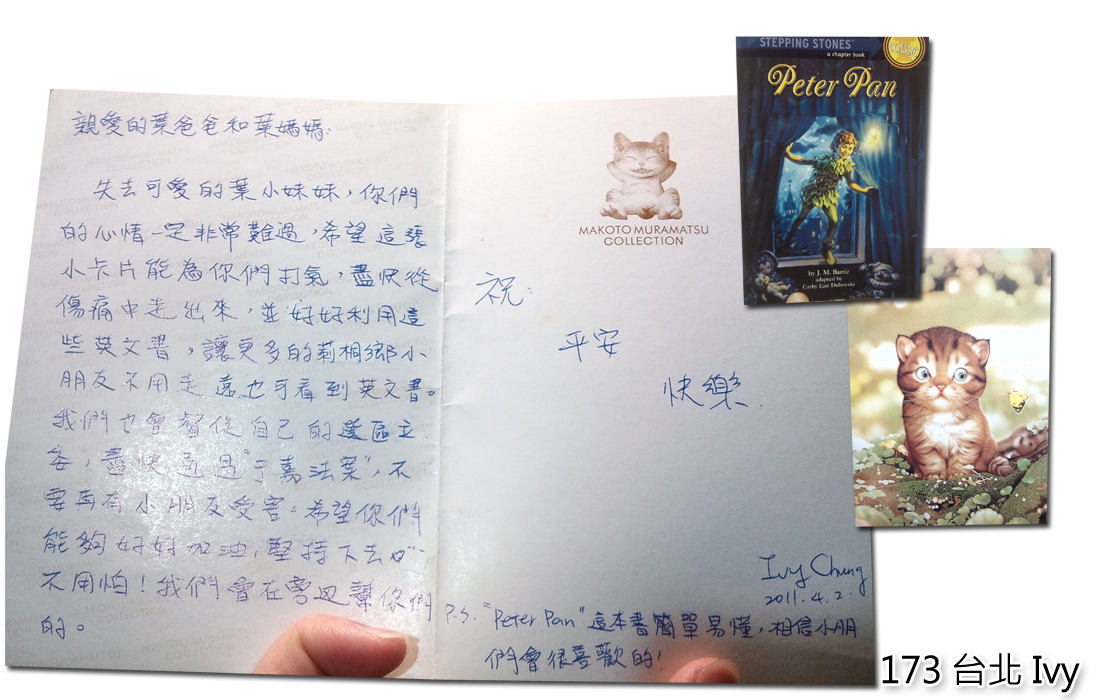 親愛的葉爸爸和葉媽媽:
失去可愛的葉小妹妹，你們
的心情一定非常難過，希望這張
小卡片能為你們打氣，盡快從
傷痛中走出來，並好好利用這
些英文書，讓更多的莿桐鄉小
朋友不用走遠也可看到英文書。
我們也會督促自己的選區立
委，盡快通過"子嘉法案"，不
要再有小朋友受害。希望你們
能夠好好加油，堅持下去
不用怕！我們會在旁邊幫你們
的。
MAKOTO MURAMATSU
COLLECTION
祝:
平安
快樂.
Ivy Chung
2011.4.2.
P.S. "Peter Pan"這本書簡單易懂，相信小朋
們會很喜歡的!
STEPPING STONES
a chapter book
CLASSIC
Peter Pan
by J. M. Barrie
adapted by
Cathy East Dubowski
173 台北 Ivy